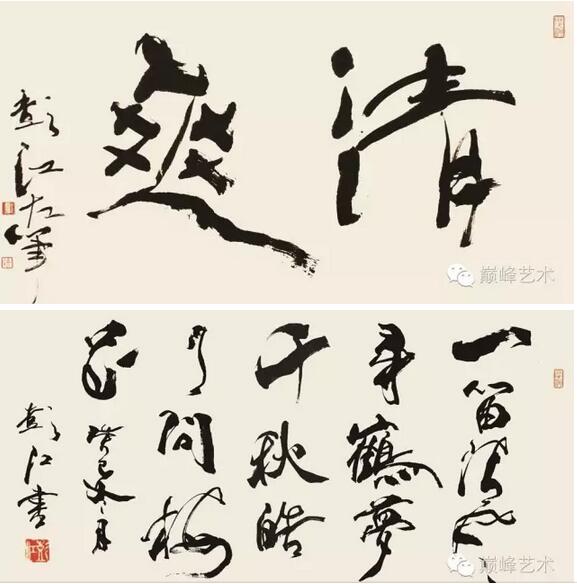 清爽
彭江左筆
巅峰艺术
一笛清风
寻鶴夢
千秋皓
月问梅
花
癸巳冬月
彭江書
巅峰艺术